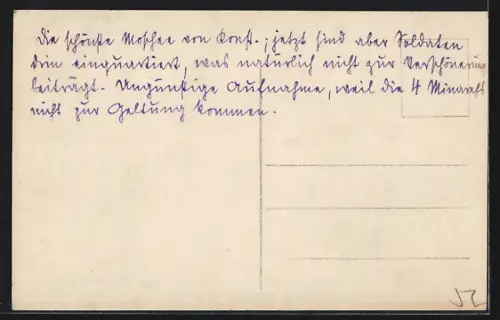 Die schönste Moschee von Konst.; jetzt sind aber Soldaten
drin einquartiert, was natürlich nicht zur Verschönerung
beiträgt. Ungünstige Aufnahme, weil die 4 Minarets
nicht zur Geltung kommen.